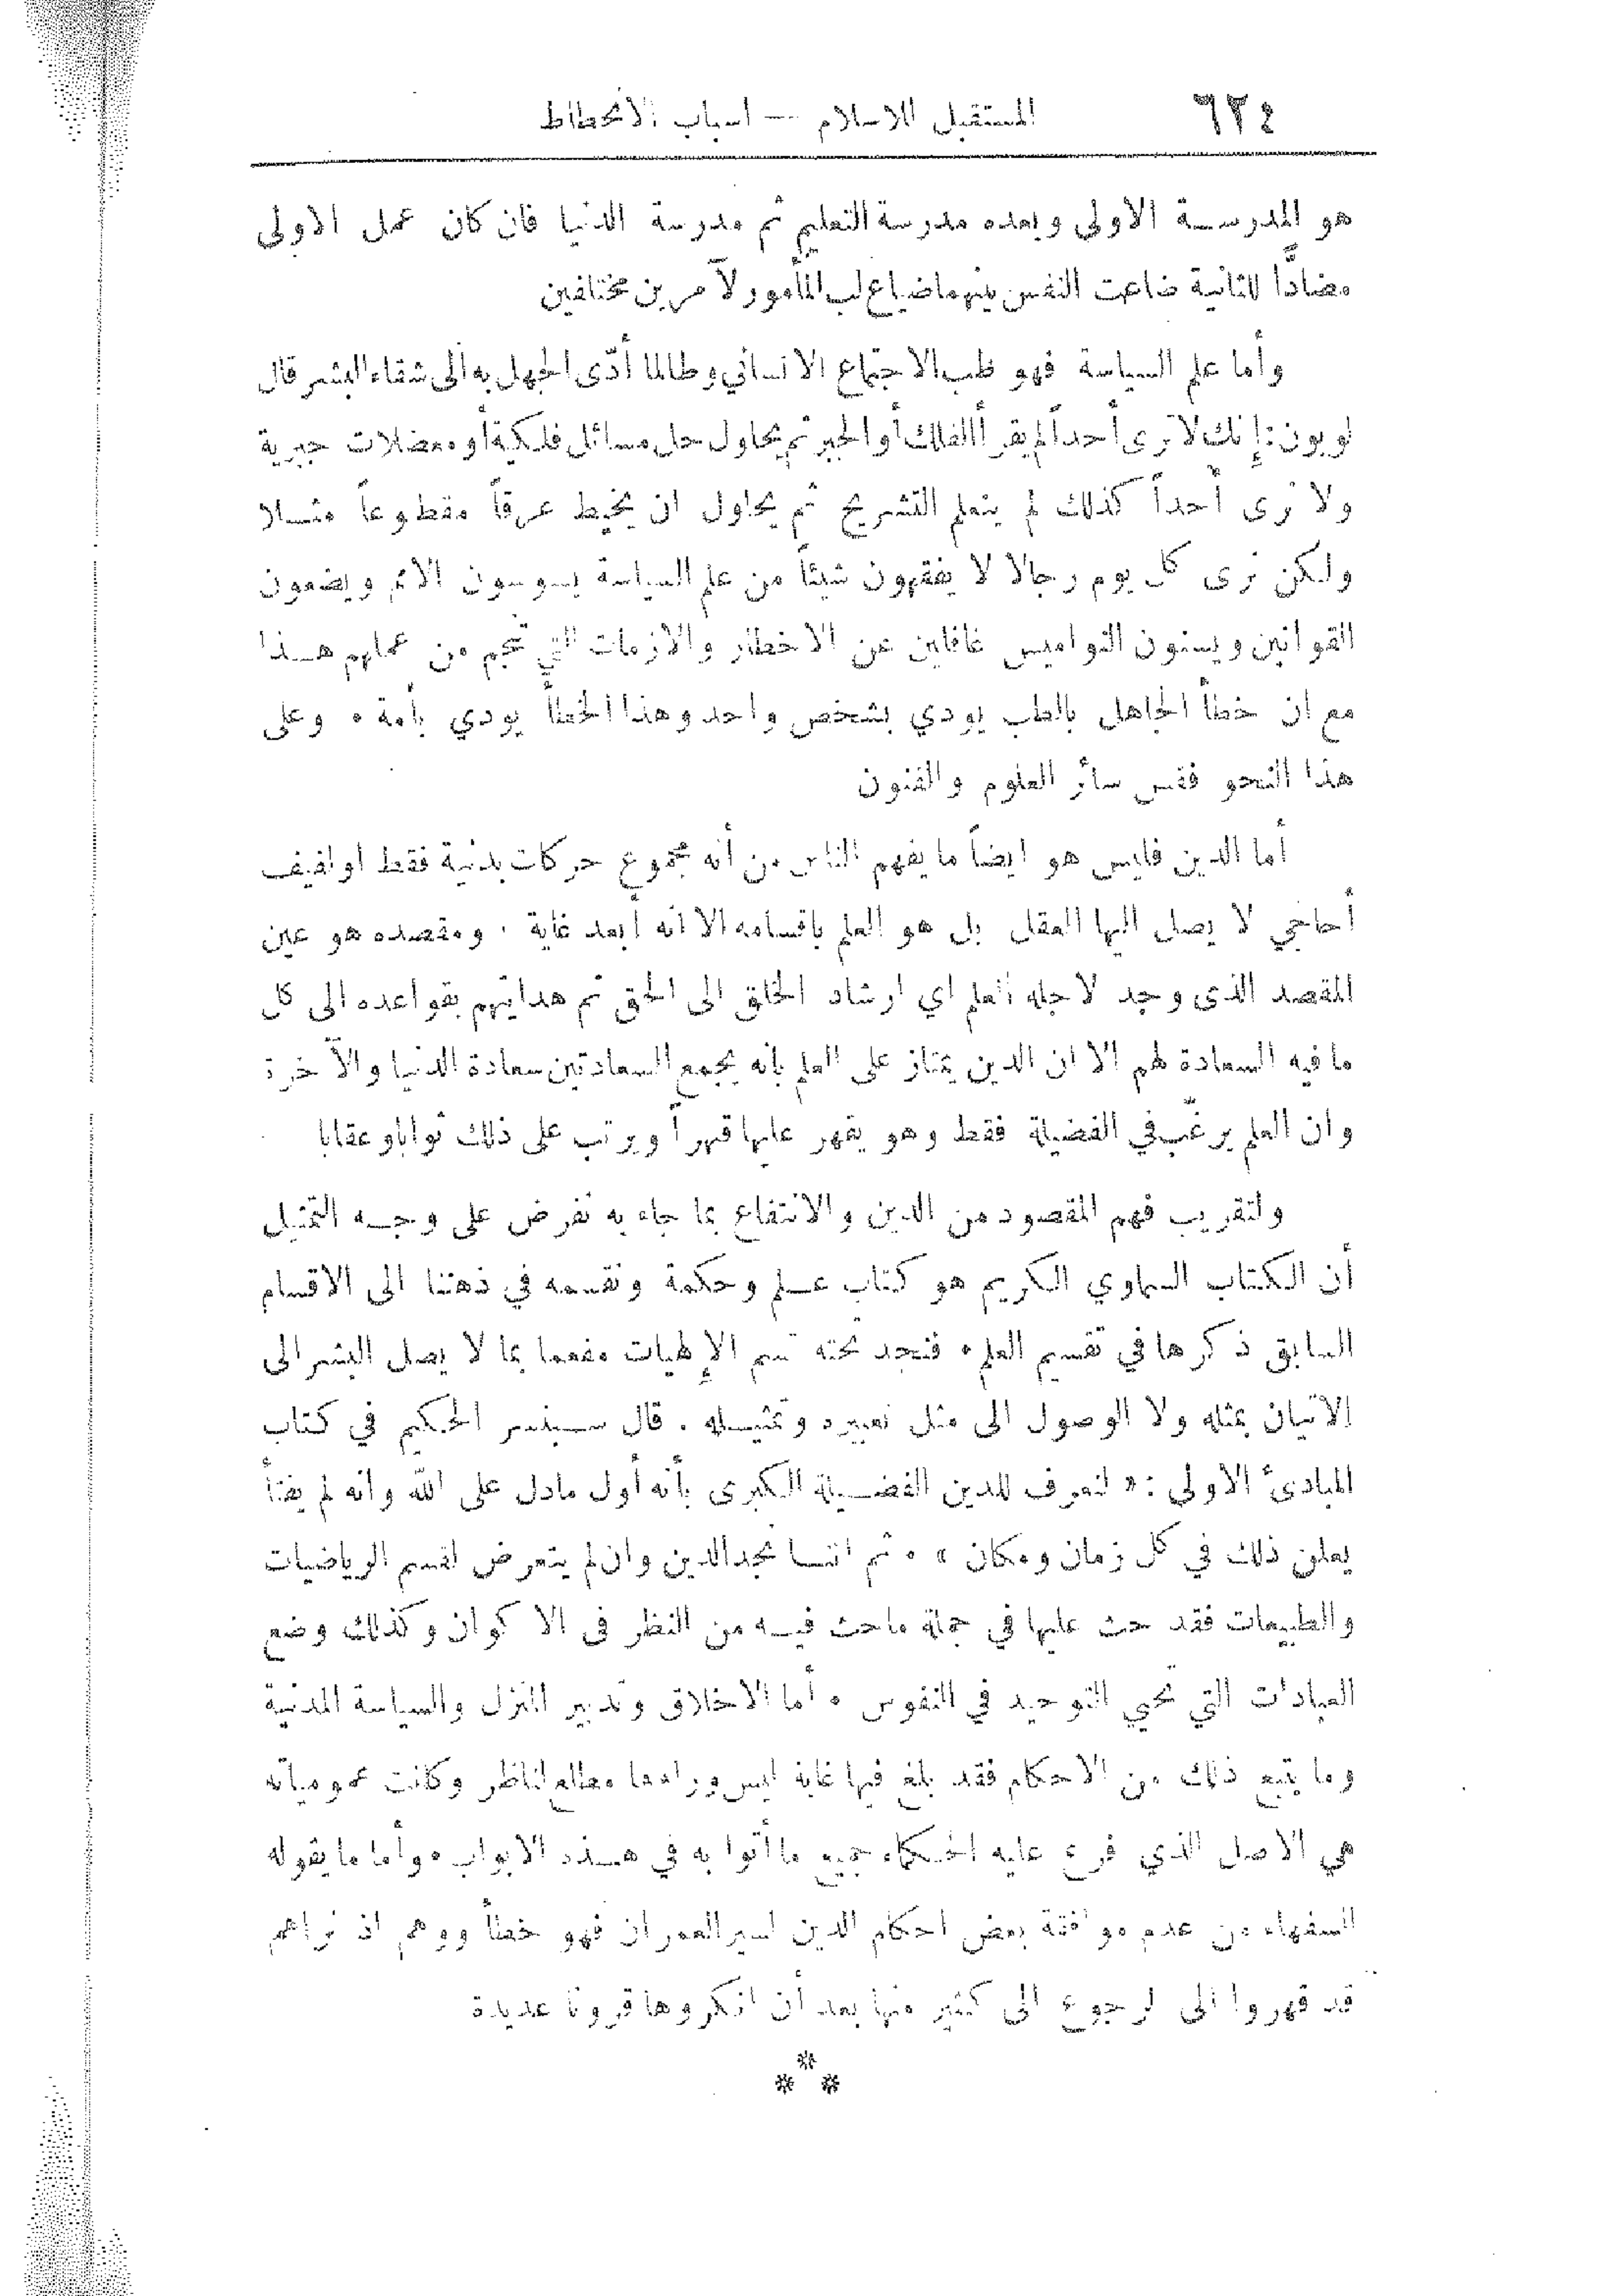 ٦٢٤
المستقبل للاسلام — اسباب الانحطاط
هو المدرسة الاولى وبعده مدرسة التعليم ثم مدرسة الدنيا فان كان عمل الاولى
مضادًّا للثانية ضاعت النفس بينهما ضياع لب المأمور لآ مرين مختلفين
وأما علم السياسة فهو طب الاجتماع الانساني وطالما أدّى الجهل به الى شقاء البشر قال
لوبون : إنك لا ترى أحداً لم يقرأ الفلك أو الجبر ثم يحاول حل مسائل فلكية أو معضلات جبرية
ولا ترى أحداً كذلك لم يتعلم التشريح ثم يحاول ان يخيط عرقاً مقطوعاً مثلا
ولكن نرى كل يوم رجالا لا يفقهون شيئاً من علم السياسة يسوسون الامم ويضعون
القوانين ويسنون النواميس غافلين عن الاخطار والازمات التي تنجم من عملهم هذا
مع ان خطأ الجاهل بالطب يودي بشخص واحد وهذا الخطأ يودي بأمة ٠ وعلى
هذا النحو فقس سائر العلوم والفنون
أما الدين فليس هو ايضاً ما يفهم الناس من أنه مجموع حركات بدنية فقط او لفيف
أحاجي لا يصل اليها العقل بل هو العلم باقسامه الا انه ابعد غاية . ومقصده هو عين
المقصد الذى وجد لاجله العلم اي ارشاد الخلق الى الحق ثم هدايتهم بقواعده الى كل
ما فيه السعادة لهم الا ان الدين يمتاز على العلم بانه يجمع السعادتين سعادة الدنيا والآخرة
وان العلم يرغّب في الفضيلة فقط وهو يقهر عليها قهراً ويرتب على ذلك ثوابا وعقابا
ولتقريب فهم المقصود من الدين والانتفاع بما جاء به نفرض على وجه التمثيل
أن الكتاب السماوي الكريم هو كتاب علم وحكمة ونقسمه في ذهننا الى الاقسام
السابق ذكرها في تقسيم العلم ٠ فنجد تحته قسم الإلهيات مفعما بما لا يصل البشر الى
الاتيان بمثله ولا الوصول الى مثل تعبيره وتمثيله . قال سبنسر الحكيم في كتاب
المبادئ الاولى : « لنعرف للدين الفضيلة الكبرى بأنه أول مادل على الله وانه لم يفتأ
يعلن ذلك في كل زمان ومكان » ٠ ثم اننا نجد الدين وان لم يتعرض لقسم الرياضيات
والطبيعات فقد حث عليها في جملة ماحث فيه من النظر فى الاكوان وكذلك وضع
العبادات التي تحيي التوحيد في النفوس ٠ أما الاخلاق وتدبير المنزل والسياسة المدنية
وما يتبع ذلك من الاحكام فقد بلغ فيها غاية ليس وراءها مطلع لناظر وكانت عمومياته
هي الاصل الذي فرع عليه الحكماء جميع ما أتوا به في هذه الابواب ٠ وأما ما يقوله
السفهاء من عدم موافقة بعض احكام الدين لسير العمران فهو خطأ ووهم اذ نراهم
قد قهروا الى الرجوع الى كثير منها بعد أن انكروها قرونا عديدة
***